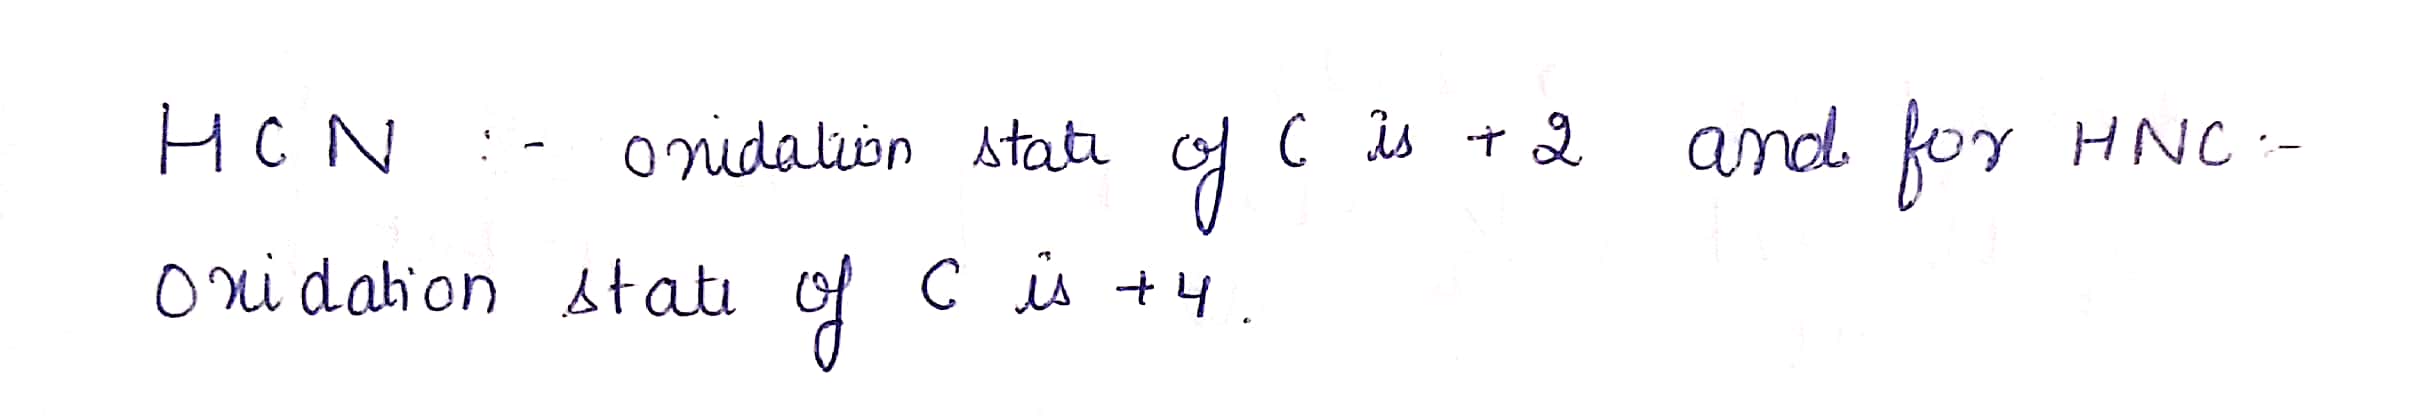 HCN :- oxidation state of C is +2 and for HNC :-
oxidation state of C is +4.